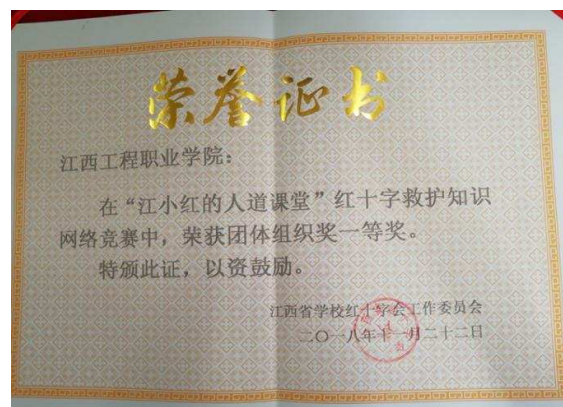 荣誉证书
江西工程职业学院：
在“江小红的人道课堂”红十字救护知识
网络竞赛中，荣获团体组织奖一等奖。
特颁此证，以资鼓励。
江西省学校红十字会工作委员会
二〇一八年十一月二十二日